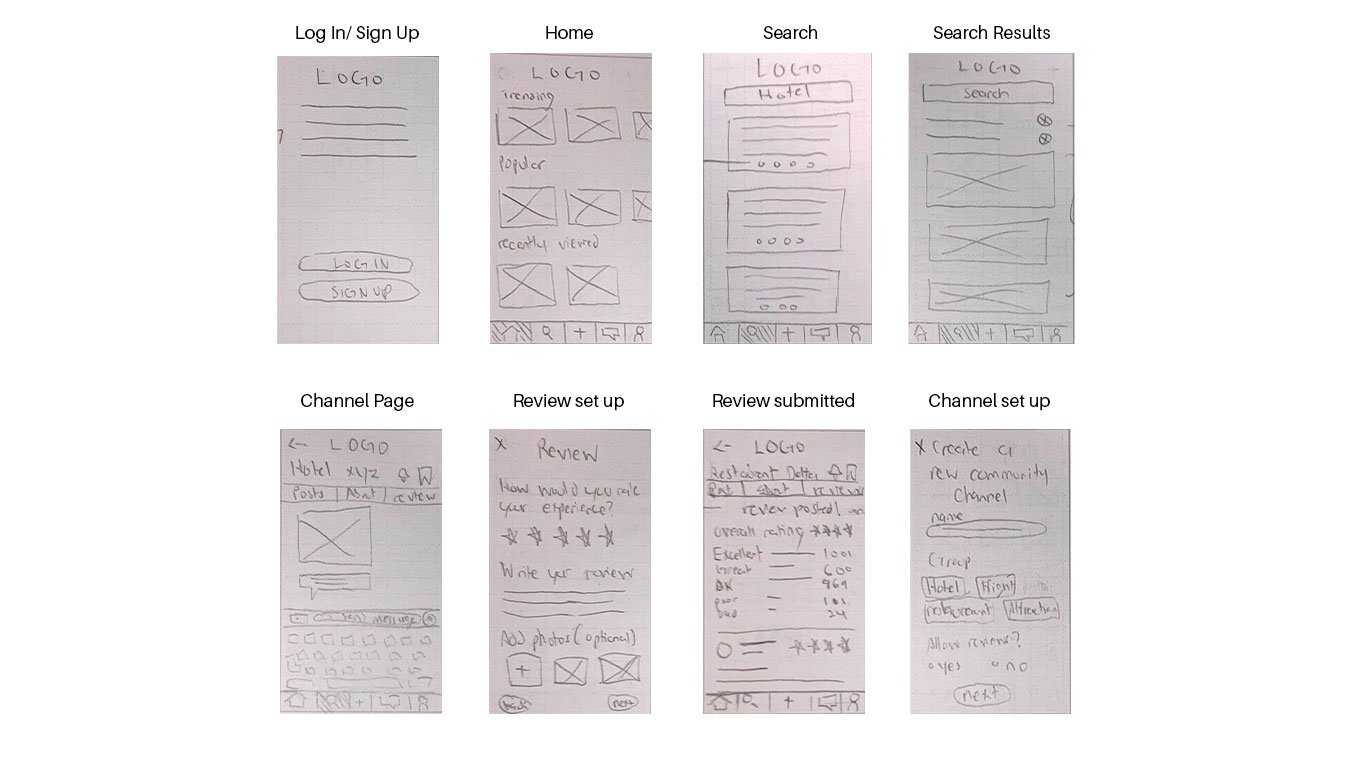 Log In/ Sign Up
LOGO
LOG IN
SIGN UP
Home
LOGO
Trending
Popular
recently viewed
Search
LOGO
Hotel
Search Results
LOGO
Search
Channel Page
LOGO
Hotel xyz
Posts
review
message
Review set up
X Review
How would you rate
your experience?
Write your review
Add photos (optional)
+
back
next
Review submitted
LOGO
Restaurant
overall rating
Excellent 1001
Great 600
OK 969
poor 101
bad 24
Channel set up
X Create a
new community
Channel
name
Group
Hotel Flight
restaurant Attraction
Allow reviews?
yes no
next